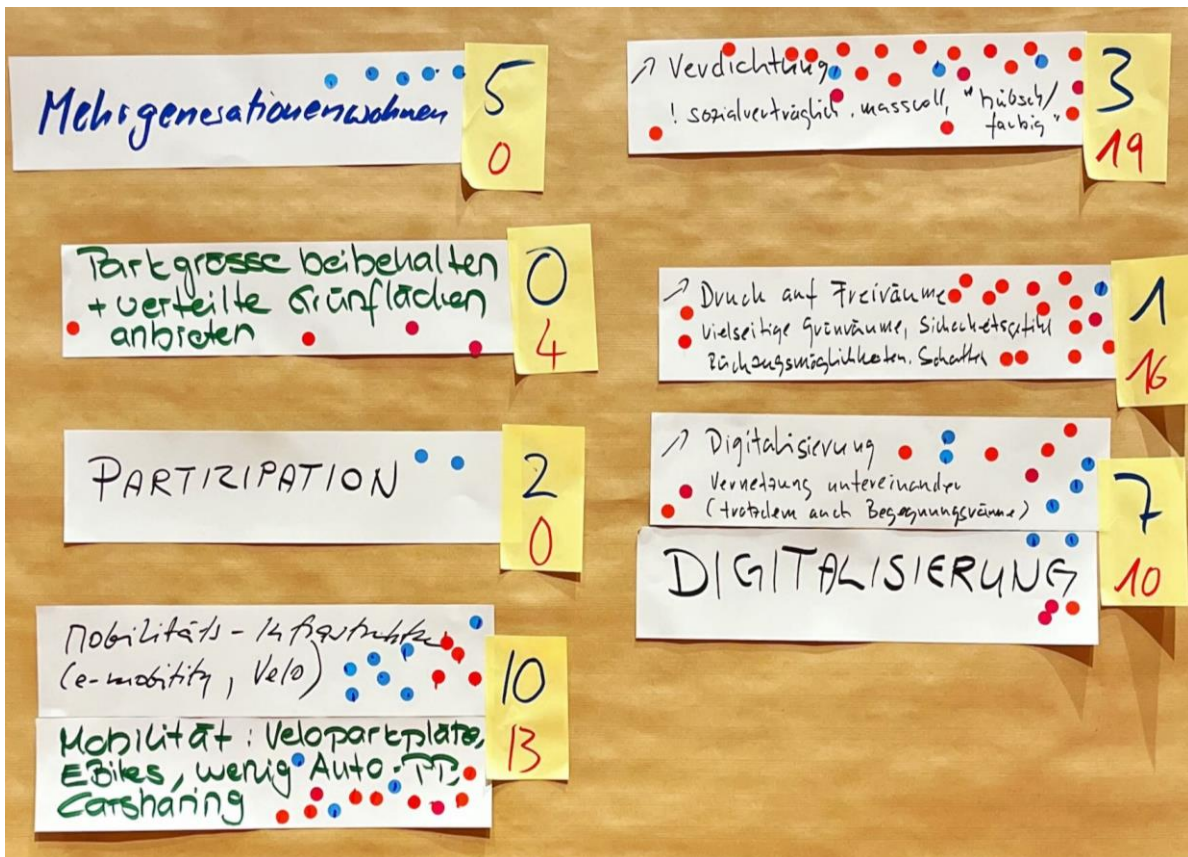 Mehrgenerationenwohnen
5
0
Parkgrösse beibehalten
+ verteilte Grünflächen
anbieten
0
4
PARTIZIPATION
2
0
Mobilitäts-Infrastruktur
(e-mobility, Velo)
Mobilität: Veloparkplätze,
EBikes, wenig Auto-PP,
Carsharing
10
13
↗ Verdichtung
! sozialverträglich, massvoll, "hübsch/
farbig"
3
19
↗ Druck auf Freiräume
vielseitige Grünräume, Sicherheitsgefühl
Rückzugsmöglichkeiten. Schatten
1
16
↗ Digitalisierung
Vernetzung untereinander
(trotzdem auch Begegnungsräume)
DIGITALISIERUNG
7
10